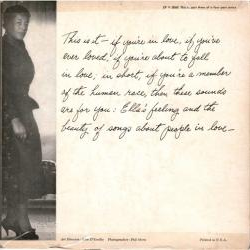 This is it — if you're in love, if you've
ever loved, if you're about to fall
in love, in short, if you're a member
of the human race, then these sounds
are for you: Ella's feeling and the
beauty of songs about people in love —
Printed in U.S.A.